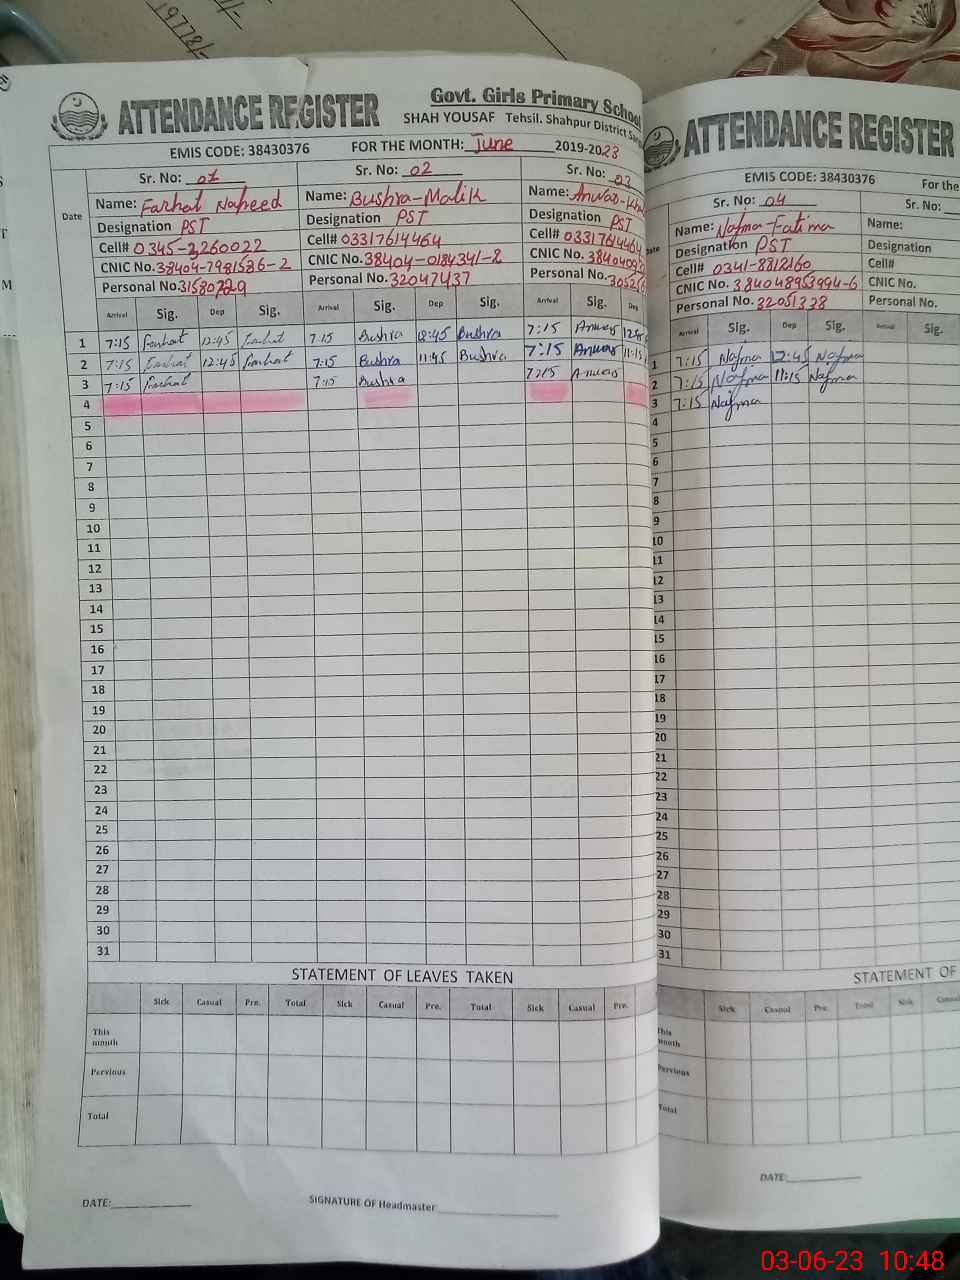 19778/-
ATTENDANCE REGISTER
Govt. Girls Primary School
SHAH YOUSAF Tehsil. Shahpur District
EMIS CODE: 38430376 FOR THE MONTH: June 2019-2023
Date
Sr. No: 01 Sr. No: 02 Sr. No: 03
Name: Farhat Naheed Name: Bushra-Malik Name: Anwar
Designation PST Designation PST Designation PST
Cell# 0345-2260022 Cell# 03317614464 Cell# 03317614464
CNIC No. 38404-7981586-2 CNIC No. 38404-0184341-8 CNIC No.
Personal No. 31580729 Personal No. 32047437 Personal No.
Arrival Sig. Dep Sig. Arrival Sig. Dep Sig. Arrival Sig. Dep
1 7:15 Farhat 12:45 Farhat 7:15 Bushra 12:45 Bushra 7:15 Anwar
2 7:15 Farhat 12:45 Farhat 7:15 Bushra 11:45 Bushra 7:15 Anwar 11:15
3 7:15 Farhat 7:15 Bushra 7:15 Anwar
4
5
6
7
8
9
10
11
12
13
14
15
16
17
18
19
20
21
22
23
24
25
26
27
28
29
30
31
STATEMENT OF LEAVES TAKEN
Sick Casual Pre. Total Sick Casual Pre. Total Sick Casual Pre.
This
month
Pervious
Total
DATE: SIGNATURE OF Headmaster
ATTENDANCE REGISTER
EMIS CODE: 38430376 For the
Date
Sr. No: 04 Sr. No:
Name: Najma-Fatima Name:
Designation PST Designation
Cell# 0341-8812160 Cell#
CNIC No. 384048953994-6 CNIC No.
Personal No. 32051328 Personal No.
Arrival Sig. Dep Sig. Arrival Sig.
1 7:15 Najma 12:45 Najma
2 7:15 Najma 11:15 Najma
3 7:15 Najma
4
5
6
7
8
9
10
11
12
13
14
15
16
17
18
19
20
21
22
23
24
25
26
27
28
29
30
31
STATEMENT OF
Sick Casual Pre. Total Sick
This
month
Pervious
Total
DATE:
03-06-23 10:48